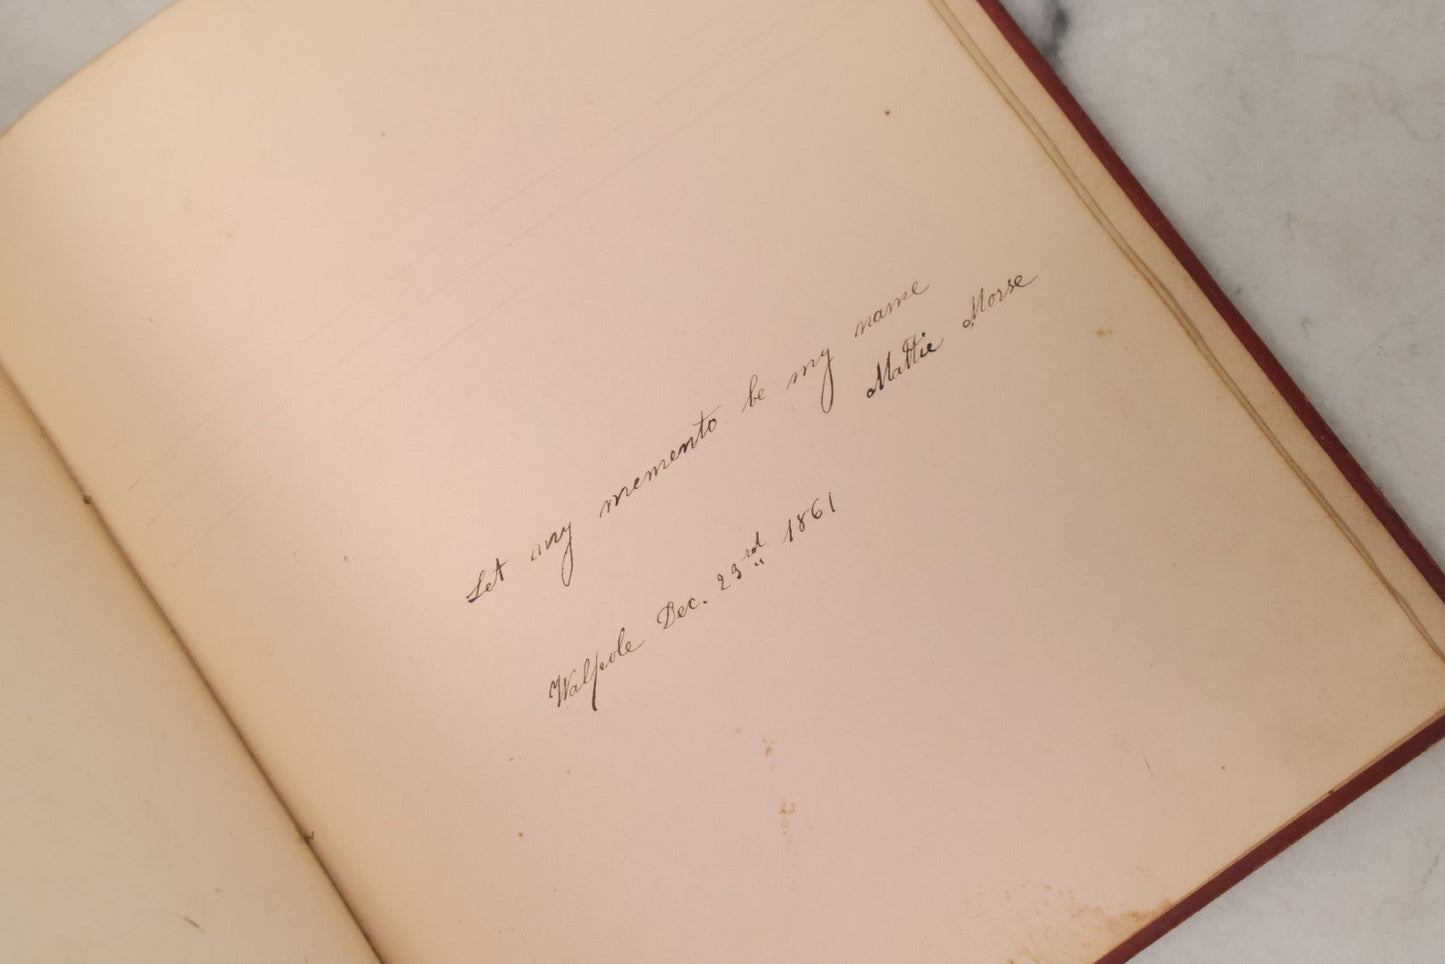 Let my memento be my name
Mattie Morse
Walpole Dec. 23rd 1861